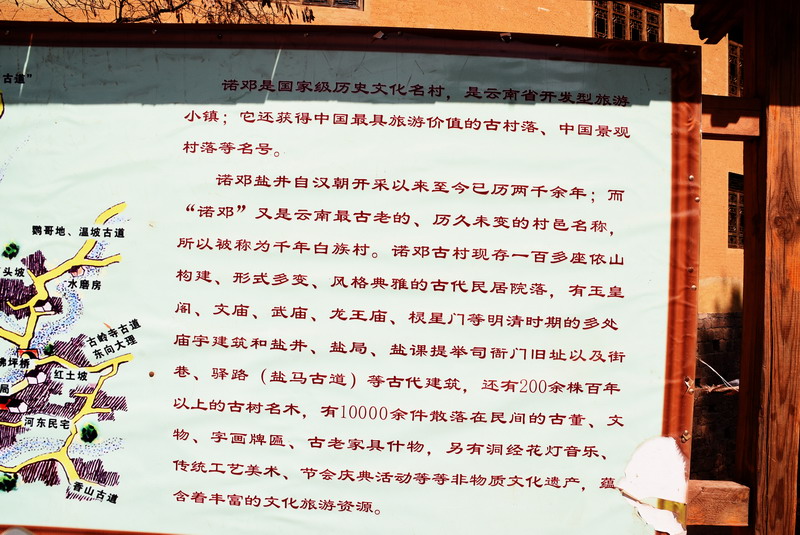 古道”
鹦哥地、温坡古道
头坡
水磨房
古岭寺古道
东向大理
坪桥
红土坡
局
河东民宅
香山古道
诺邓是国家级历史文化名村，是云南省开发型旅游
小镇；它还获得中国最具旅游价值的古村落、中国景观
村落等名号。
诺邓盐井自汉朝开采以来至今已历两千余年；而
“诺邓”又是云南最古老的、历久未变的村邑名称，
所以被称为千年白族村。诺邓古村现存一百多座依山
构建、形式多变、风格典雅的古代民居院落，有玉皇
阁、文庙、武庙、龙王庙、棂星门等明清时期的多处
庙宇建筑和盐井、盐局、盐课提举司衙门旧址以及街
巷、驿路（盐马古道）等古代建筑，还有200余株百年
以上的古树名木，有10000余件散落在民间的古董、文
物、字画牌匾、古老家具什物，另有洞经花灯音乐、
传统工艺美术、节会庆典活动等等非物质文化遗产，蕴
含着丰富的文化旅游资源。